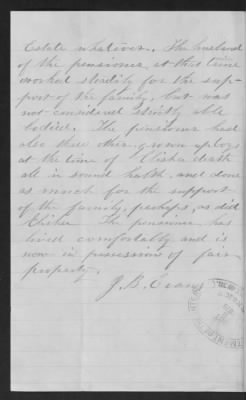 Estate whatever. The husband
of the pensioner, at that time
worked steadily for the sup-
port of the family, but was
not considered strictly able
bodied. The pensioner had
also three other grown up boys
at the time of Elisha death
all in sound health, and done
as much for the support
of the family, perhaps, as did
Elisha. The pensioner has
lived comfortably and is
now in possession of fair
property.
J. B. Evans